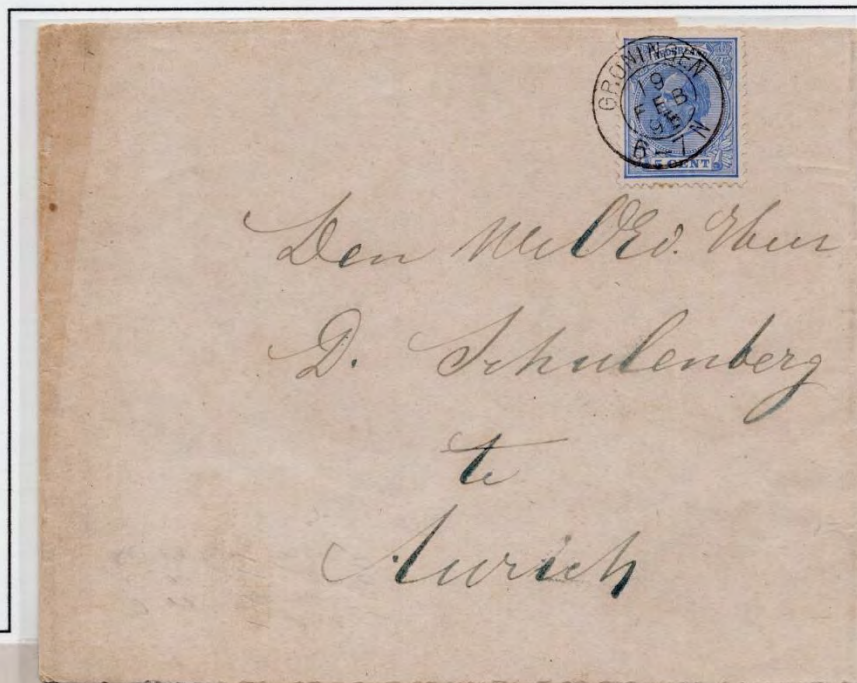 NEDERLAND
GRONINGEN
19
FEB
95
6-7N
5 CENT
Den WelEd. Heer
D. Schulenberg
te
Aurich